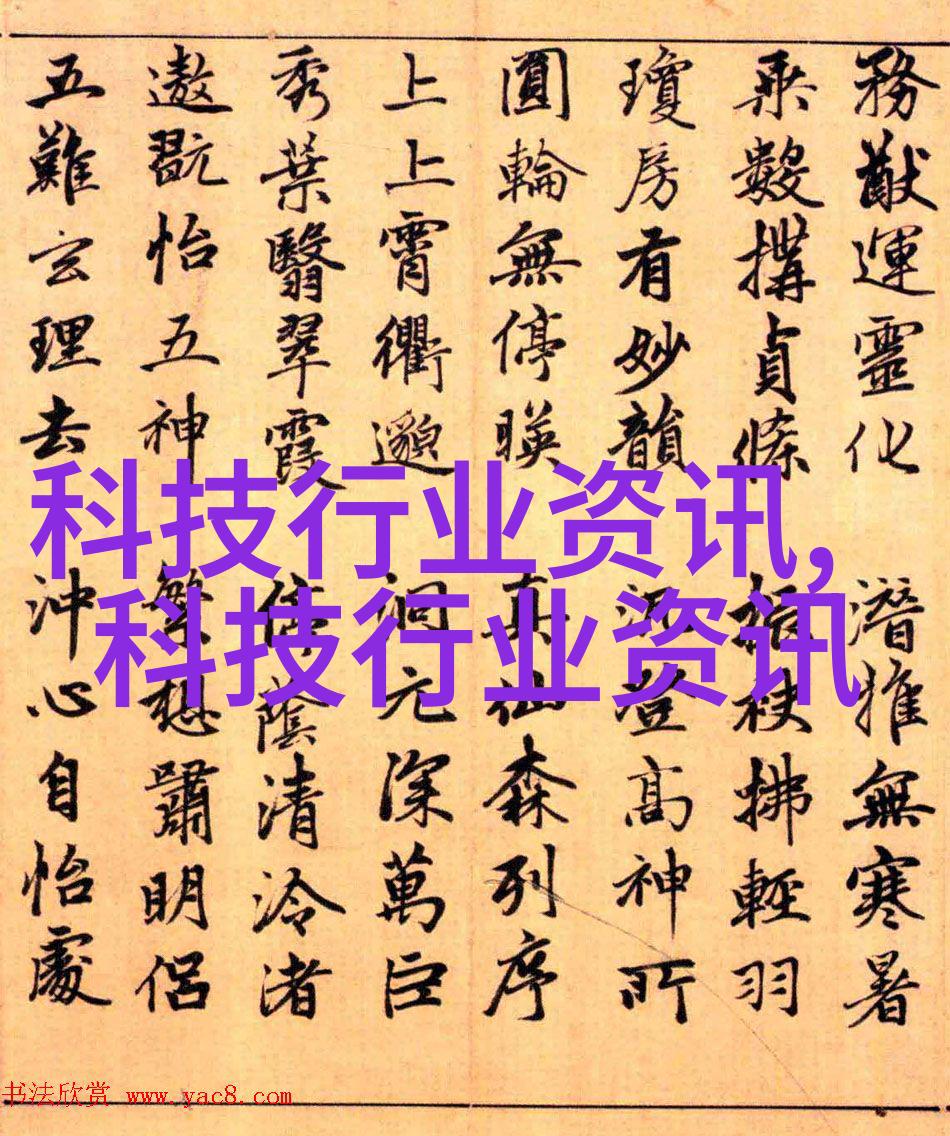 務猷運靈化
潛推無寒暑
乘數搆貞條
振袂拂輕羽
瓊房有妙韻
泛登高神所
圓輪無停暎
真仙森列序
上上霄衢邈
洞元深萬巨
秀葉翳翠霞
停蔭清泠渚
遨翫怡五神
繁想肅明侶
五難玄理去
沖心自怡處
科技行业资讯,
科技行业资讯
书法欣赏 www.yac8.com